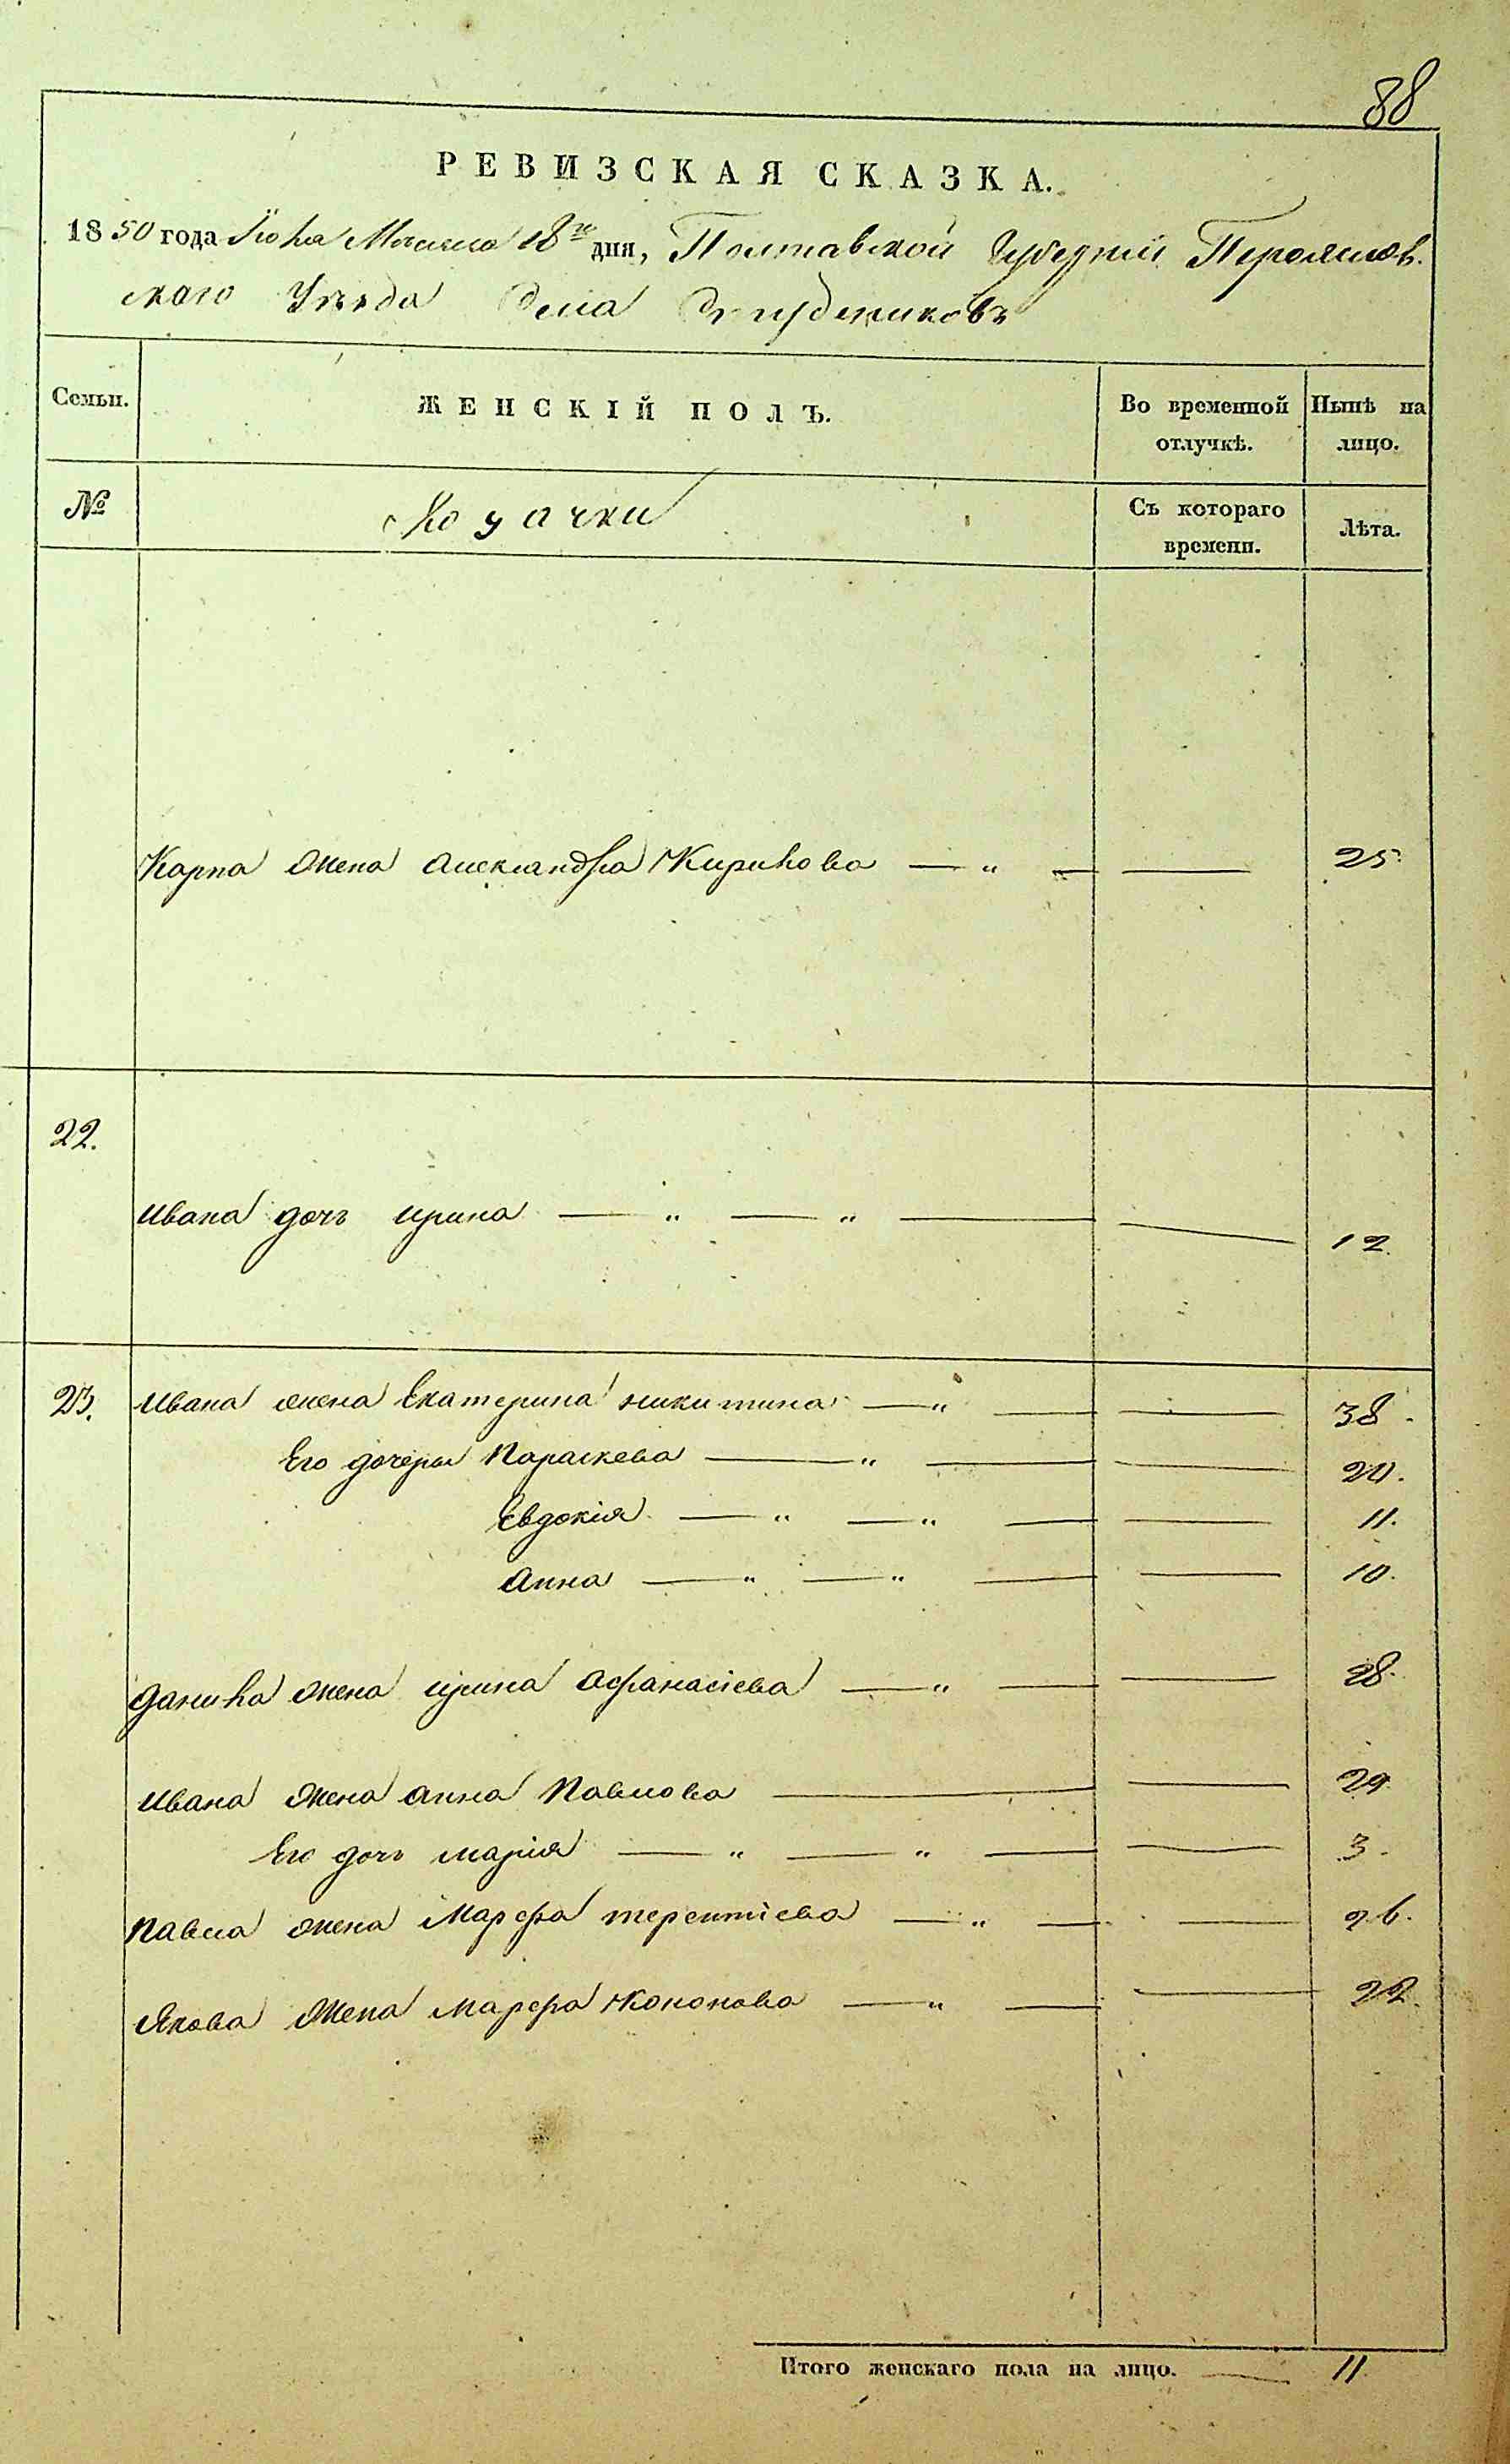 88
РЕВИЗСКАЯ СКАЗКА.
1850 года Июля Месяца 18го дня, Полтавской Губернии Перояслов-
скаго Уезда Села
Семьи.
ЖЕНСКІЙ ПОЛЪ.
Во временной отлучкѣ.
Нынѣ на лицо.
№
Козачки
Съ котораго времени.
Лѣта.
Карпа жена Александра Кирилова — " — — 25.
22.
Ивана дочь Ирина — " — " — — 12.
23. Ивана жена Екатерина Никитина — " — — 38.
Его дочери Параскева — " — — 20.
Евдокія — " — " — — 11.
Анна — " — " — — 10.
Данила жена Ирина Афанасіева — " — — 28.
Ивана жена Анна Павлова — — 29.
Его дочь Марія — " — " — — 3.
Павла жена Марфа Терентіева — " — — 26.
Якова жена Марфа Кононова — " — — 22.
Итого женскаго пола на лицо. — 11